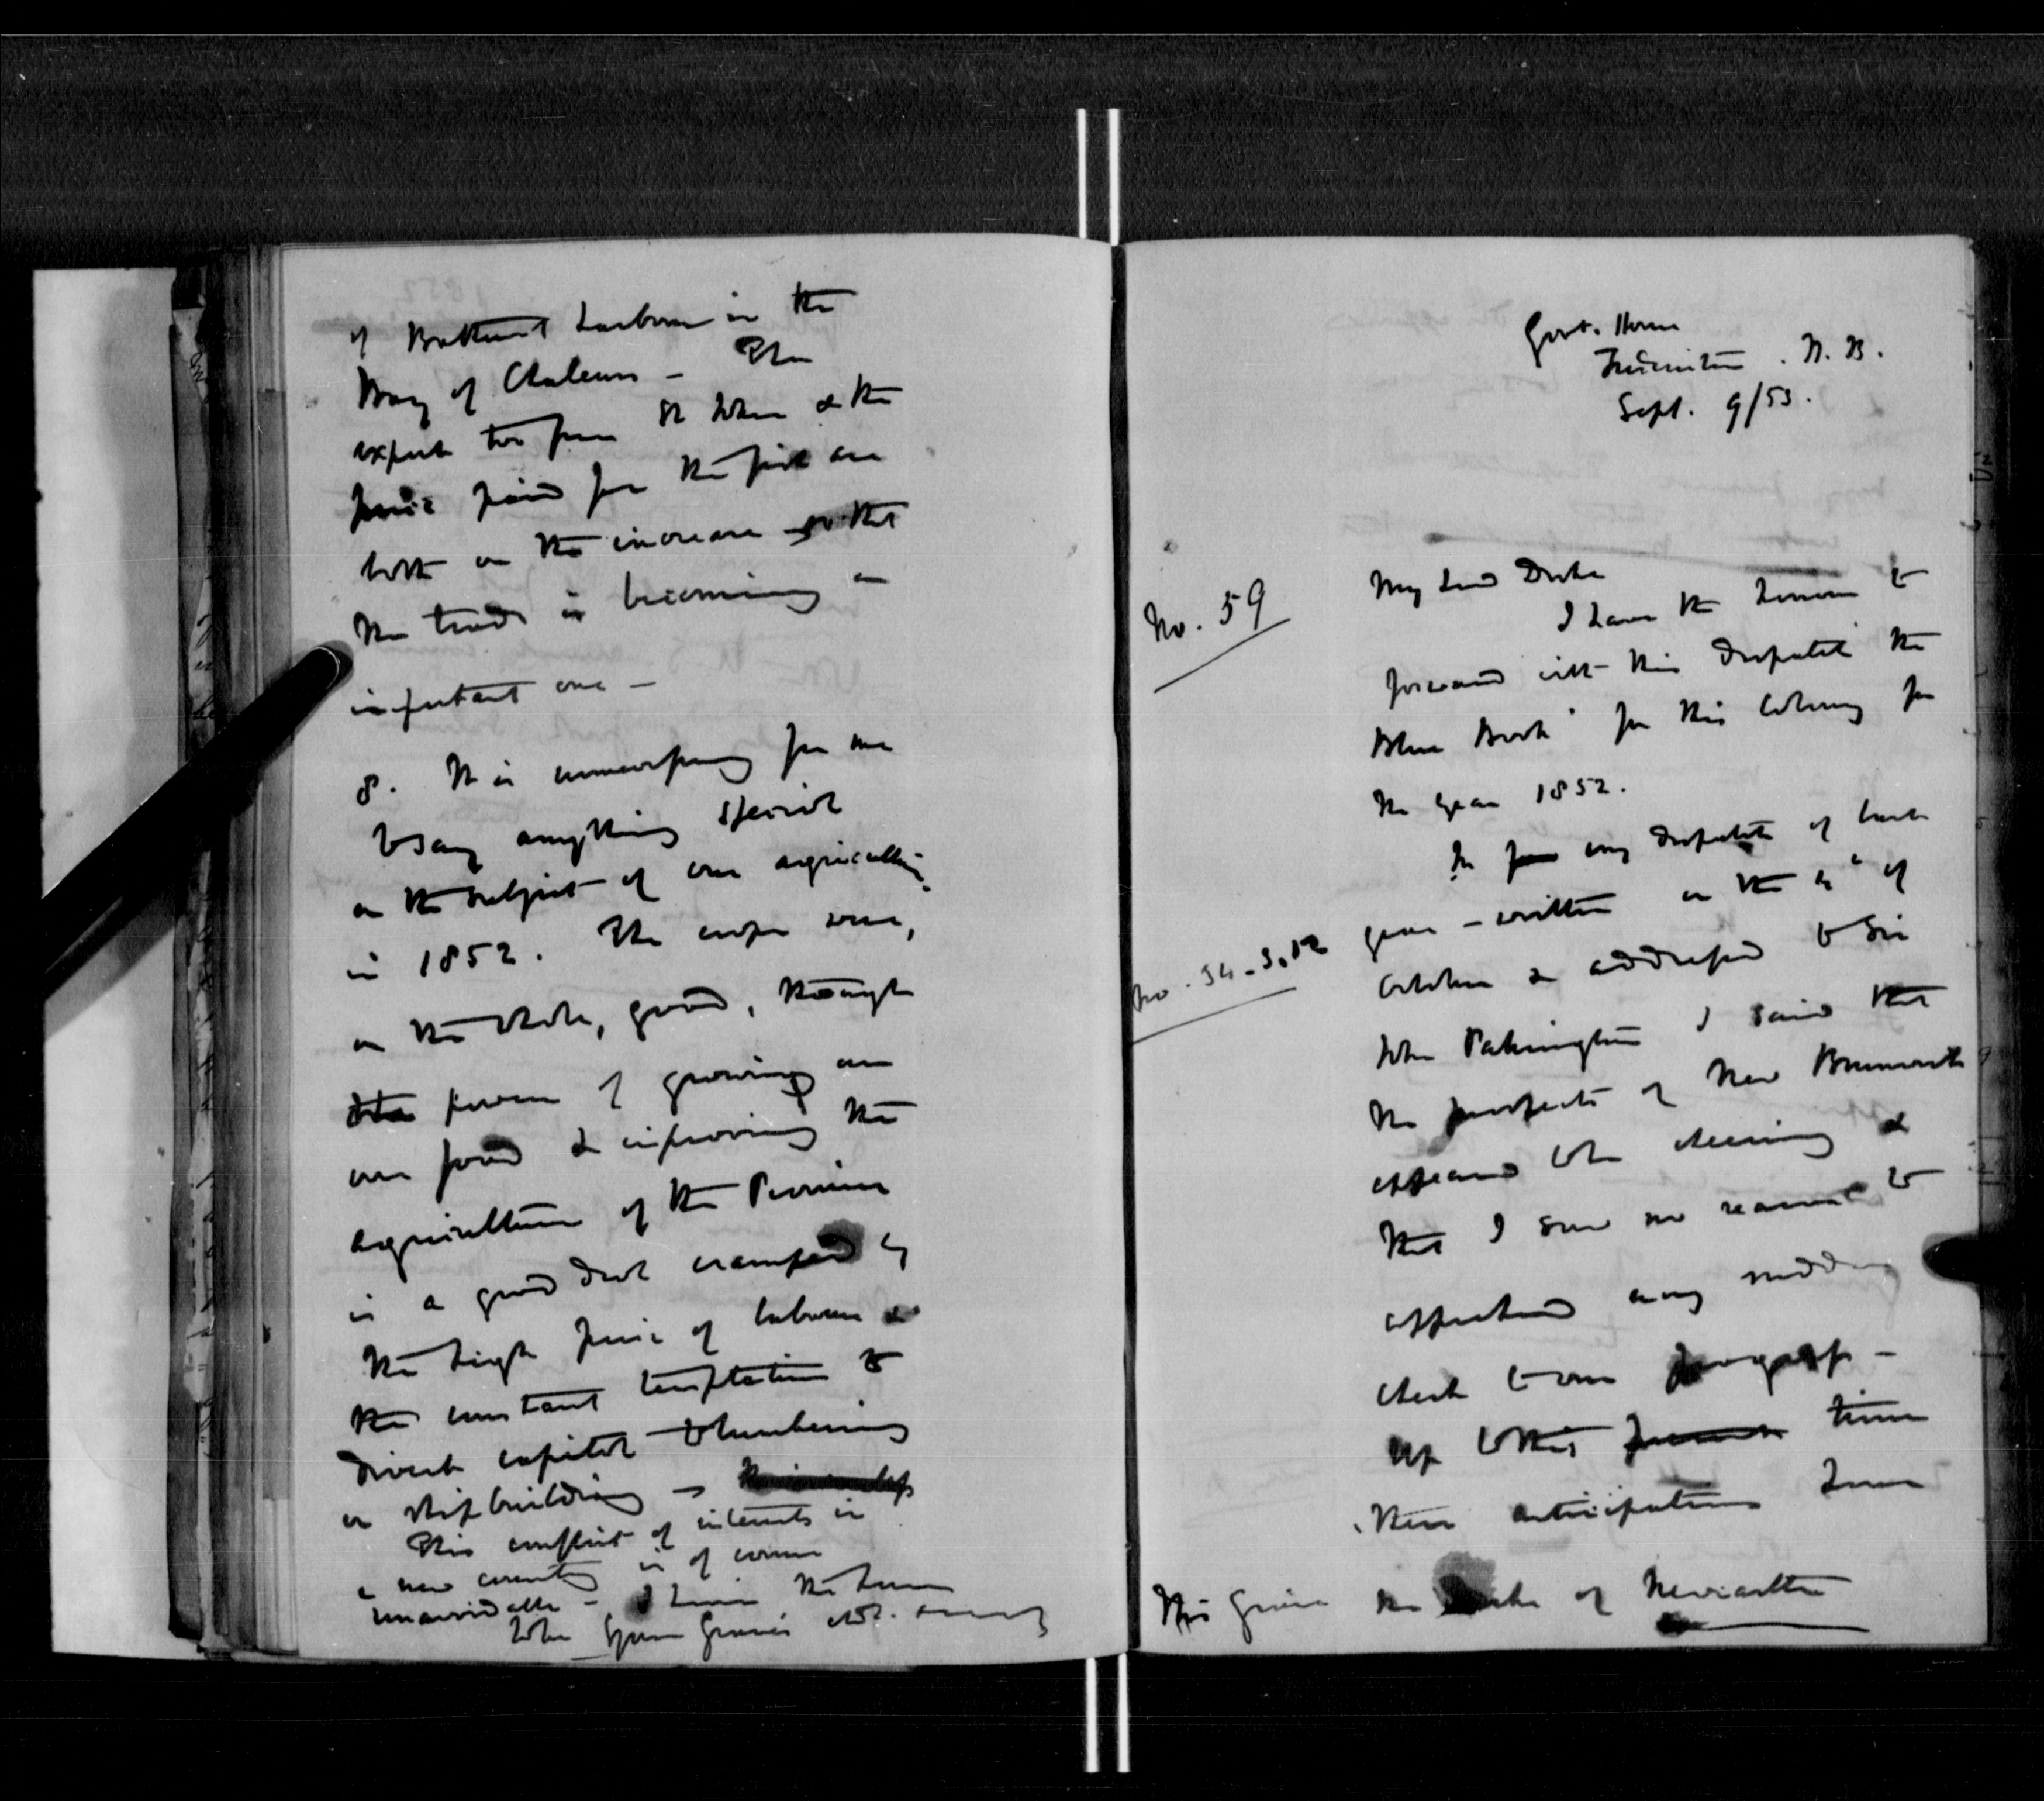 of Bathurst harbour in the
Bay of Chaleurs - The
export too from St John & the
price paid for the fish are
both on the increase so that
the trade is becoming an
important one -
8. It is unnecessary for me
to say anything special
on the subject of our agriculture
in 1852. The crops were,
on the whole, good, though
power of growing our
own food & improving the
agriculture of the Province
is a good deal cramped by
the high price of labour &
the constant temptation to
divert capital to lumbering
or shipbuilding -
This conflict of interests in
a new country is of course
unavoidable - I have the honor
to be Your Grace's
Govt. House
Fredericton. N. B.
Sept. 9/53.
No. 59
My Lord Duke
I have the honour to
forward with this Despatch the
Blue Book for this Colony for
the year 1852.
In my despatch of last
year - written on the of
No. 54
October & addressed to Sir
John Pakington I said that
the prospects of New Brunswick
appeared to be cheering &
that I saw no reason to
apprehend any sudden
check to our progress -
Up to this time
these anticipations have
His Grace the Duke of Newcastle